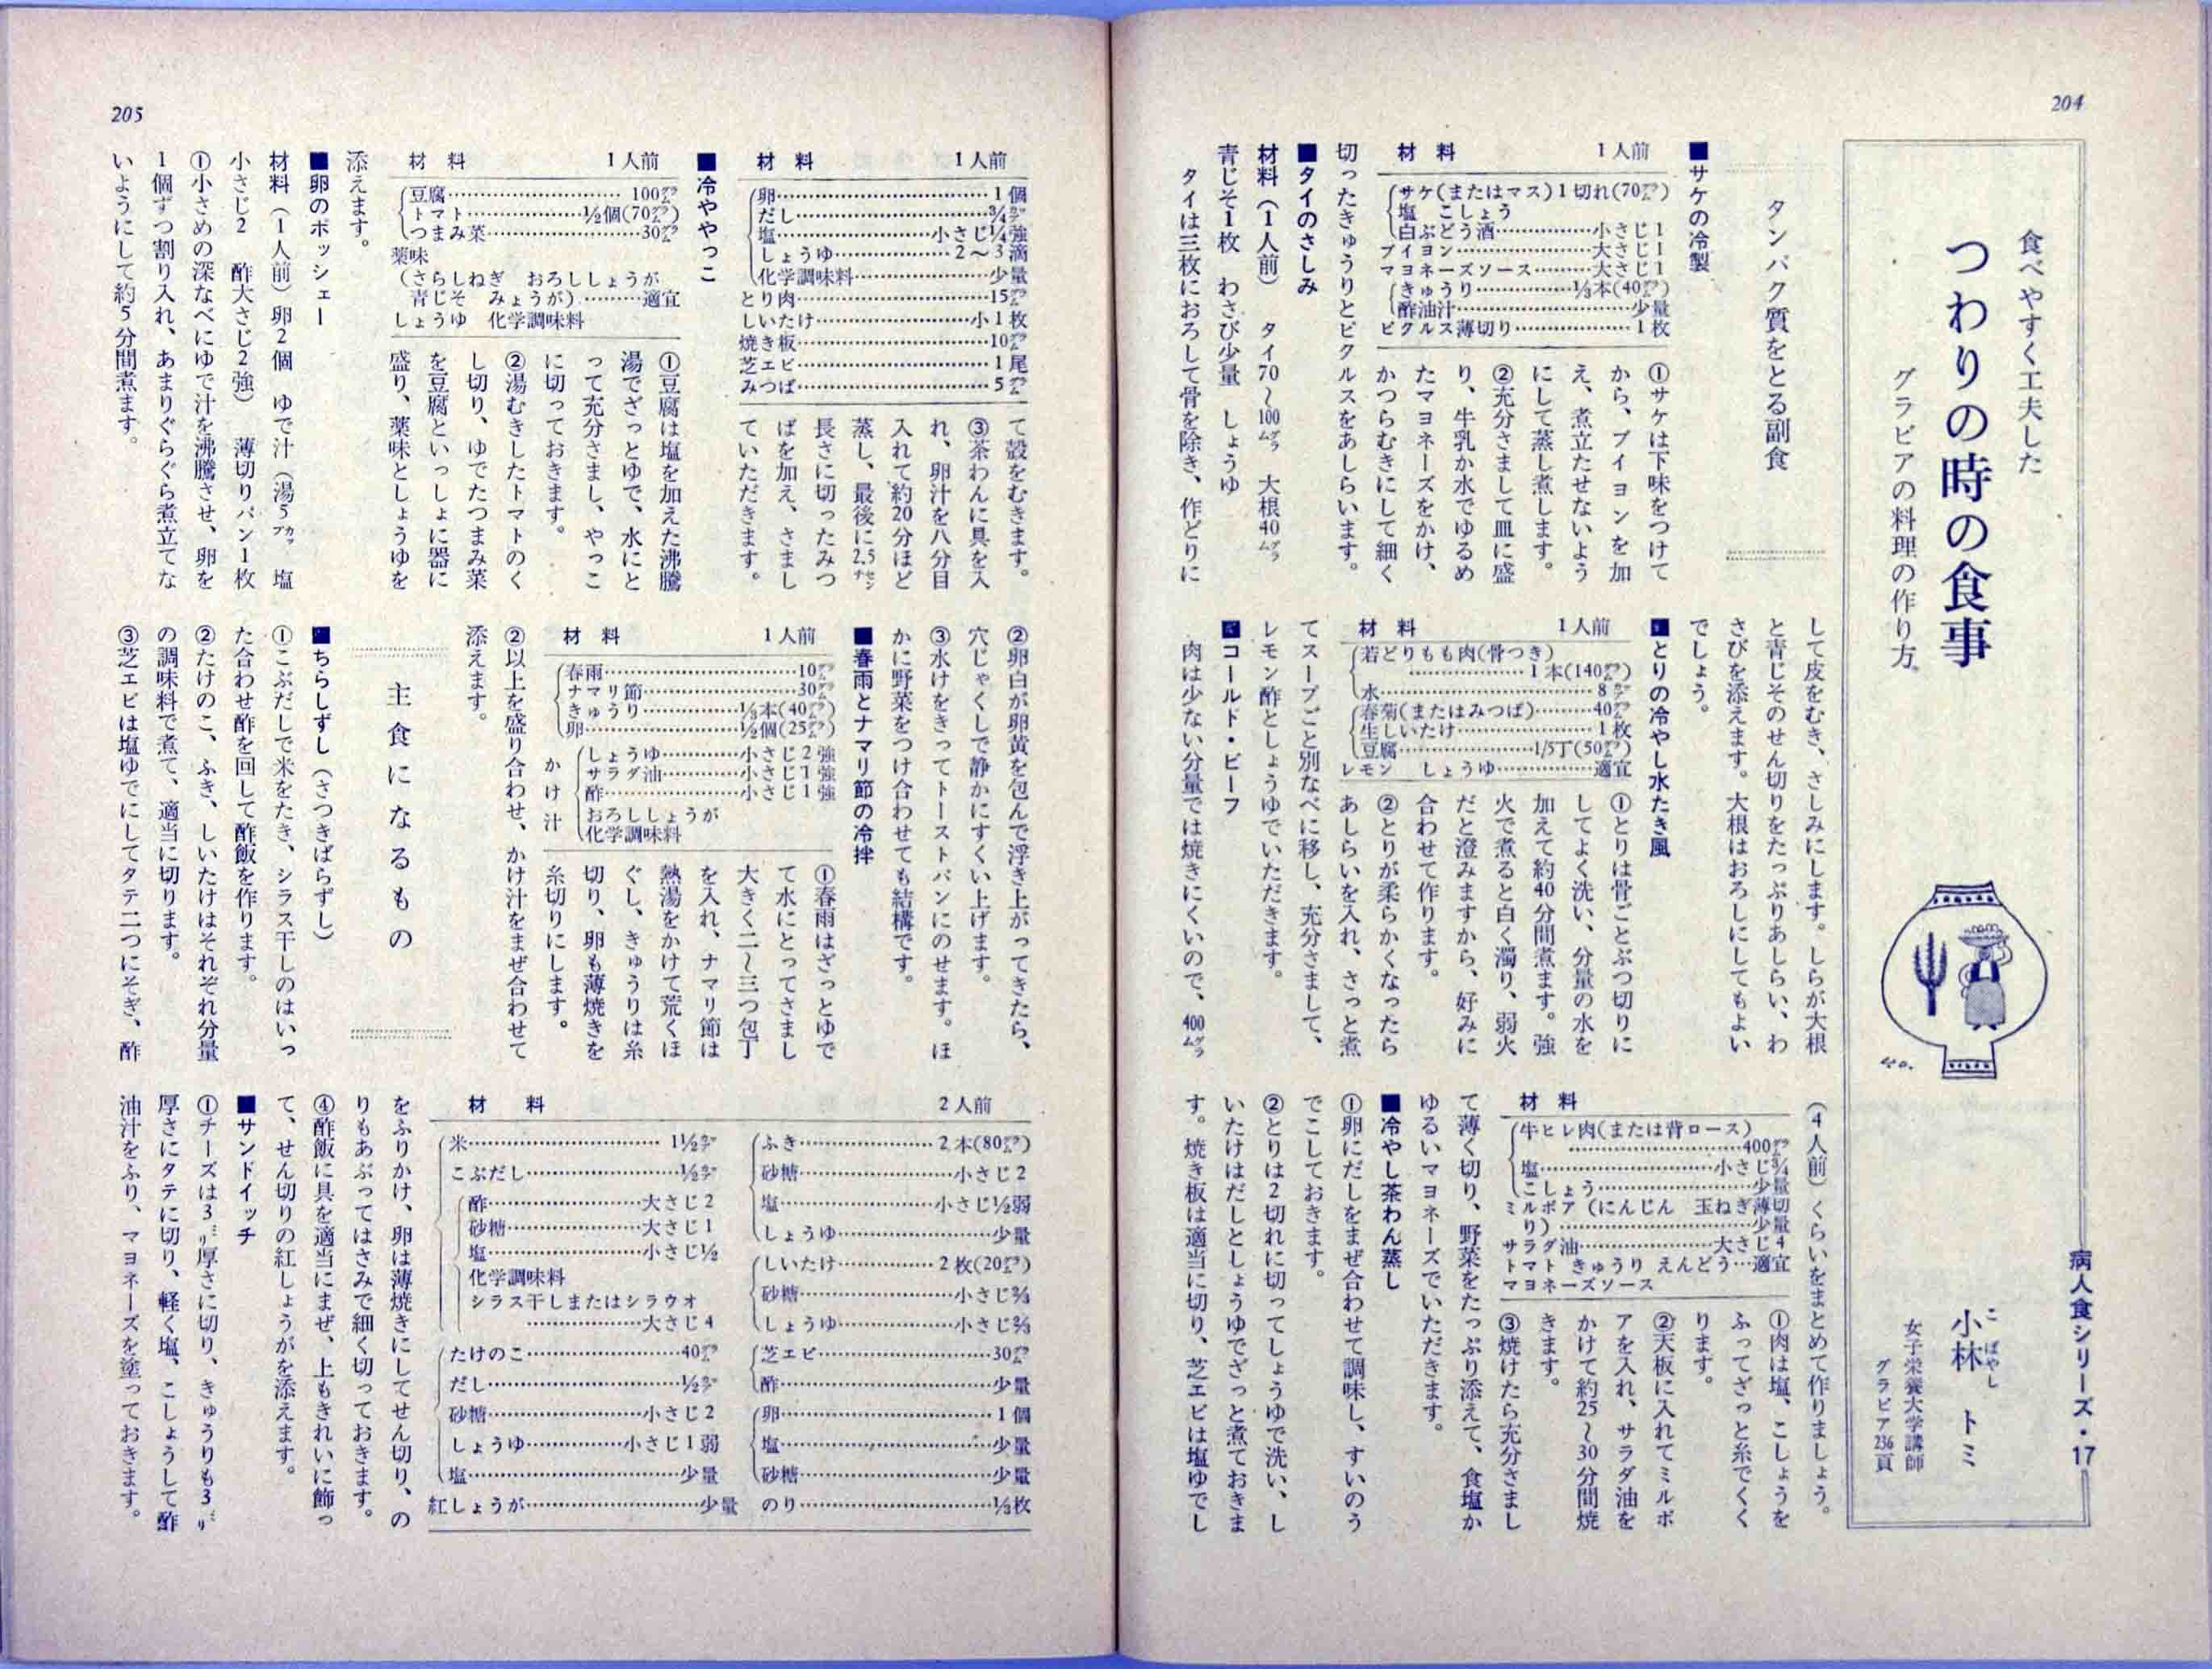 204
食べやすく工夫した
つわりの時の食事
グラビアの料理の作り方
病人食シリーズ・17
小林 トミ
こばやし
女子栄養大学講師
グラビア236頁
タンパク質をとる副食
■サケの冷製
材料 1人前
サケ(またはマス)1切れ(70グラム)
塩 こしょう
白ぶどう酒……小さじ1
ブイヨン……大さじ1
マヨネーズソース……大さじ1
きゅうり……⅓本(40グラム)
酢油汁……少量
ピクルス薄切り……1枚
①サケは下味をつけて
から、ブイヨンを加
え、煮立たせないよう
にして蒸し煮します。
②充分さまして皿に盛
り、牛乳か水でゆるめ
たマヨネーズをかけ、
かつらむきにして細く
切ったきゅうりとピクルスをあしらいます。
■タイのさしみ
材料(1人前) タイ70〜100グラム 大根40グラム
青じそ1枚 わさび少量 しょうゆ
タイは三枚におろして骨を除き、作どりに
して皮をむき、さしみにします。しらが大根
と青じそのせん切りをたっぷりあしらい、わ
さびを添えます。大根はおろしにしてもよい
でしょう。
■とりの冷やし水たき風
材料 1人前
若どりもも肉(骨つき)
……1本(140グラム)
水……8カップ
春菊(またはみつば)……40グラム
生しいたけ……1枚
豆腐……1/5丁(50グラム)
レモン しょうゆ……適宜
①とりは骨ごとぶつ切りに
してよく洗い、分量の水を
加えて約40分間煮ます。強
火で煮ると白く濁り、弱火
だと澄みますから、好みに
合わせて作ります。
②とりが柔らかくなったら
あしらいを入れ、さっと煮
てスープごと別なべに移し、充分さまして、
レモン酢としょうゆでいただきます。
■コールド・ビーフ
肉は少ない分量では焼きにくいので、400グラム
(4人前)くらいをまとめて作りましょう。
材料
牛ヒレ肉(または背ロース)
……400グラム
塩……小さじ¾
こしょう……少量
ミルポア(にんじん 玉ねぎ薄切
り)……少量
サラダ油……大さじ4
トマト きゅうり えんどう…適宜
マヨネーズソース
①肉は塩、こしょうを
ふってざっと糸でくく
ります。
②天板に入れてミルポ
アを入れ、サラダ油を
かけて約25〜30分間焼
きます。
③焼けたら充分さまし
て薄く切り、野菜をたっぷり添えて、食塩か
ゆるいマヨネーズでいただきます。
■冷やし茶わん蒸し
①卵にだしをまぜ合わせて調味し、すいのう
でこしておきます。
②とりは2切れに切ってしょうゆで洗い、し
いたけはだしとしょうゆでざっと煮ておきま
す。焼き板は適当に切り、芝エビは塩ゆでし
205
材料 1人前
卵……1個
だし……¾カップ
塩……小さじ¼強
しょうゆ……2〜3滴
化学調味料……少量
とり肉……15グラム
しいたけ……小1枚
焼き板……10グラム
芝エビ……1尾
みつば……5グラム
て殻をむきます。
③茶わんに具を入
れ、卵汁を八分目
入れて約20分ほど
蒸し、最後に2.5センチ
長さに切ったみつ
ばを加え、さまし
ていただきます。
■冷ややっこ
材料 1人前
豆腐……100グラム
トマト……½個(70グラム)
つまみ菜……30グラム
薬味
(さらしねぎ おろししょうが
青じそ みょうが)……適宜
しょうゆ 化学調味料
①豆腐は塩を加えた沸騰
湯でざっとゆで、水にと
って充分さまし、やっこ
に切っておきます。
②湯むきしたトマトのく
し切り、ゆでたつまみ菜
を豆腐といっしょに器に
盛り、薬味としょうゆを
添えます。
■卵のポッシェー
材料(1人前)卵2個 ゆで汁(湯5カップ 塩
小さじ2 酢大さじ2強) 薄切りパン1枚
①小さめの深なべにゆで汁を沸騰させ、卵を
1個ずつ割り入れ、あまりぐらぐら煮立てな
いようにして約5分間煮ます。
②卵白が卵黄を包んで浮き上がってきたら、
穴じゃくしで静かにすくい上げます。
③水けをきってトーストパンにのせます。ほ
かに野菜をつけ合わせても結構です。
■春雨とナマリ節の冷拌
材料 1人前
春雨……10グラム
ナマリ節……30グラム
きゅうり……⅓本(40グラム)
卵……½個(25グラム)
かけ汁
しょうゆ……小さじ2強
サラダ油……小さじ1強
酢……小さじ1強
おろししょうが
化学調味料
①春雨はざっとゆで
て水にとってさまし
大きく二〜三つ包丁
を入れ、ナマリ節は
熱湯をかけて荒くほ
ぐし、きゅうりは糸
切り、卵も薄焼きを
糸切りにします。
②以上を盛り合わせ、かけ汁をまぜ合わせて
添えます。
主食になるもの
■ちらしずし(さつきばらずし)
①こぶだしで米をたき、シラス干しのはいっ
た合わせ酢を回して酢飯を作ります。
②たけのこ、ふき、しいたけはそれぞれ分量
の調味料で煮て、適当に切ります。
③芝エビは塩ゆでにしてタテ二つにそぎ、酢
材料 2人前
米……1½カップ
こぶだし……½カップ
酢……大さじ2
砂糖……大さじ1
塩……小さじ½
化学調味料
シラス干しまたはシラウオ
……大さじ4
たけのこ……40グラム
だし……½カップ
砂糖……小さじ2
しょうゆ……小さじ1弱
塩……少量
紅しょうが……少量
ふき……2本(80グラム)
砂糖……小さじ2
塩……小さじ½弱
しょうゆ……少量
しいたけ……2枚(20グラム)
砂糖……小さじ⅔
しょうゆ……小さじ⅔
芝エビ……30グラム
酢……少量
卵……1個
塩……少量
砂糖……少量
のり……⅓枚
をふりかけ、卵は薄焼きにしてせん切り、の
りもあぶってはさみで細く切っておきます。
④酢飯に具を適当にまぜ、上もきれいに飾っ
て、せん切りの紅しょうがを添えます。
■サンドイッチ
①チーズは3ミリ厚さに切り、きゅうりも3ミリ
厚さにタテに切り、軽く塩、こしょうして酢
油汁をふり、マヨネーズを塗っておきます。